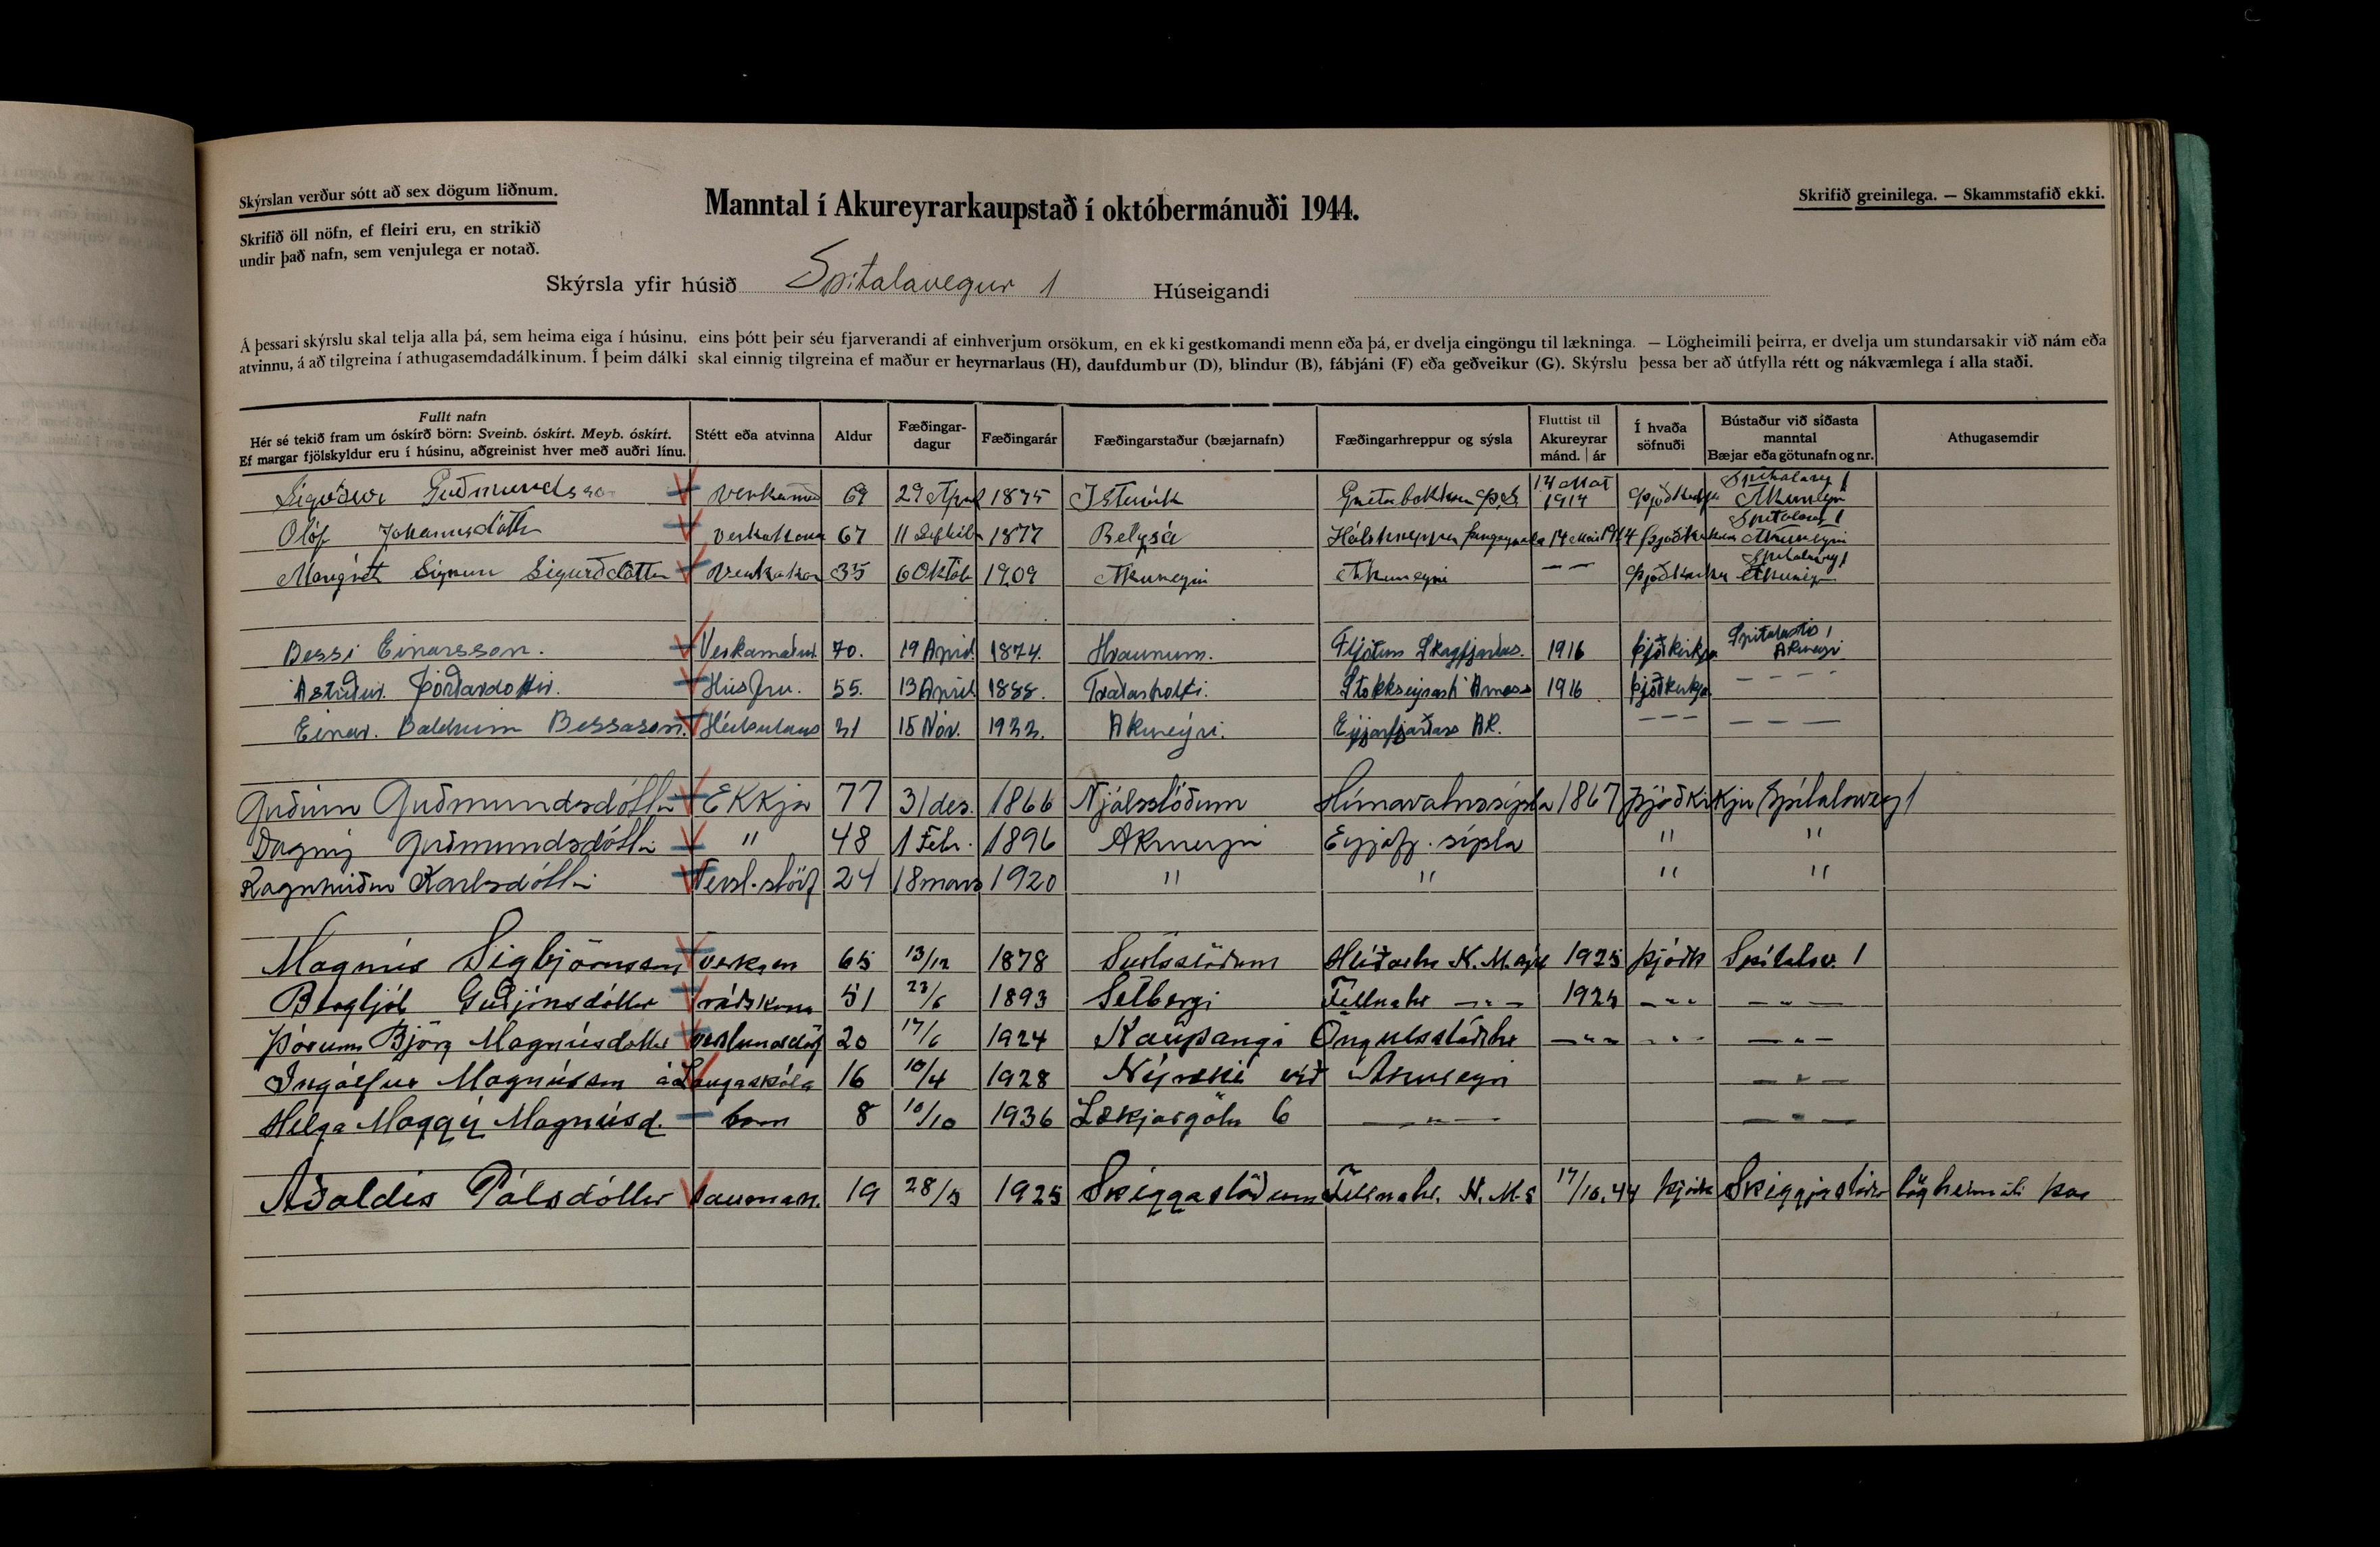 Skýrslan verður sótt að sex dögum liðnum.
Manntal í Akureyrarkaupstað í októbermánuði 1944.
Skrifið greinilega. — Skammstafið ekki.
Skrifið öll nöfn, ef fleiri eru, en strikið
undir það nafn, sem venjulega er notað.
Skýrsla yfir húsið Spitalavegur 1 Húseigandi
Á þessari skýrslu skal telja alla þá, sem heima eiga í húsinu, eins þótt þeir séu fjarverandi af einhverjum orsökum, en ekki gestkomandi menn eða þá, er dvelja eingöngu til lækninga. — Lögheimili þeirra, er dvelja um stundarsakir við nám eða
atvinnu, á að tilgreina í athugasemdadálkinum. Í þeim dálki skal einnig tilgreina ef maður er heyrnarlaus (H), daufdumbur (D), blindur (B), fábjáni (F) eða geðveikur (G). Skýrslu þessa ber að útfylla rétt og nákvæmlega í alla staði.
Fullt nafn
Hér sé tekið fram um óskírð börn: Sveinb. óskírt. Meyb. óskírt.
Ef margar fjölskyldur eru í húsinu, aðgreinist hver með auðri línu.
Stétt eða atvinna
Aldur
Fæðingar-
dagur
Fæðingarár
Fæðingarstaður (bæjarnafn)
Fæðingarhreppur og sýsla
Fluttist til
Akureyrar
mánd. ár
Í hvaða
söfnuði
Bústaður við síðasta
manntal
Bæjar eða götunafn og nr.
Athugasemdir
Sigurður Guðmundsson 69 29 Apríl 1875 14 Maí 1914 Spitalaveg 1 Akureyri
Ólöf Jóhannsdóttir verkakona 67 1877 Belgsá 14 Maí 1914 Spitalaveg 1 Akureyri
Margrét Sigrun Sigurðdóttir verkakon 35 6 Októb 1909 Akureyri Akureyri — — Spitalaveg 1 Akureyri
Bessi Einarsson. Verkamaður 70. 19 Apríl 1874. Hraunum. Fljótum Skagfjarðas. 1916 þjóðkirkja 1 Akureyri
Ástríður Þórðardottir. Húsfru. 55. 13 Apríl 1888. 1916 þjóðkirkja — — — —
Einar. Baldvin Bessason. 21 15 Nóv. 1922. Akureyri. Eyjarfjarðars AK. — — — — — —
Guðrún Guðmundsdóttir Ekkja 77 31 des. 1866 Njálsstöðum Húnavatnssýsla 1867 Þjóðkirkju Spítalaveg 1
Dagný Guðmundsdóttir " 48 1 Febr. 1896 Akureyri Eyjafj. sýsla " "
Ragnheiður Karlsdóttir Versl.störf 24 18 mars 1920 " " " "
Magnús Sigbjörnsson verkam 65 13/12 1878 N.M. 1925 þjóðk Spítalav. 1
Bergljót Guðjónsdóttir ráðskona 51 23/6 1893 Selbergi Fellnahr — " — 1924 — " — — " —
Þórunn Björg Magnúsdóttir 20 17/6 1924 Kaupangi Öngulsstaðahr — " — — " — — " —
Ingólfur Magnússon á Laugaskóla 16 10/4 1928 við Akureyri — " —
Helga Maggý Magnúsd. barn 8 10/10 1936 Lækjargötu 6 — " — — " —
Aðaldís Pálsdóttir saumak. 19 28/5 1925 Skeggjastöðum Fellnahr. N.M.S 17/10.44 þjóðk Skeggjastöðum lögheimili þar